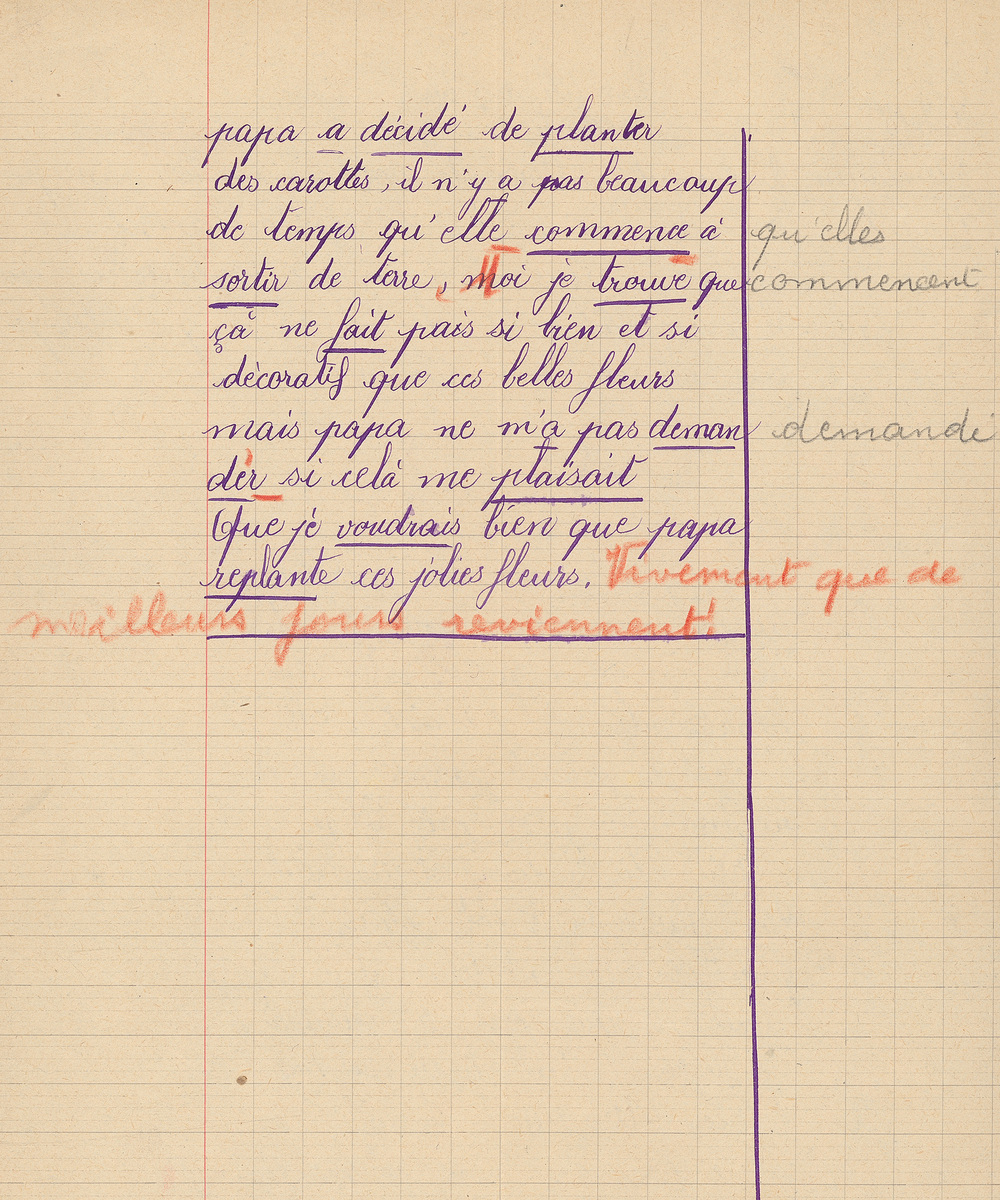 papa a décidé de planter
des carottes, il n'y a pas beaucoup
de temps qu'elle commence à qu'elles
sortir de terre, moi je trouve que commencent
ça ne fait pas si bien et si
décoratif que ces belles fleurs
mais papa ne m'a pas deman demandé
der si celà me plaisait
Que je voudrais bien que papa
replante ces jolies fleurs. Vivement que de
meilleurs jours reviennent!